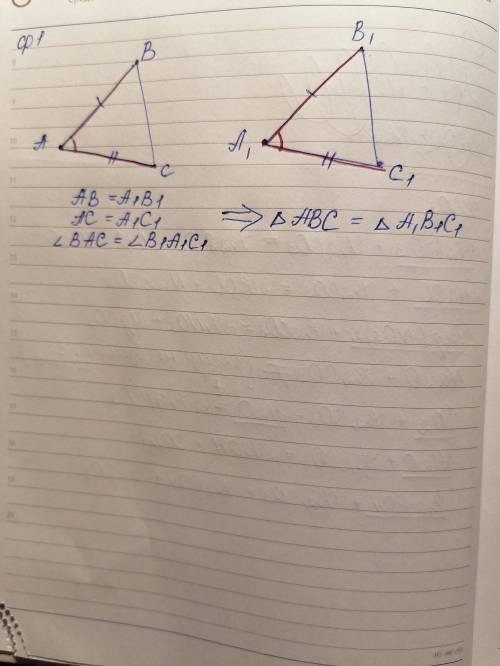 ср1
B
B₁
A
C
A₁
C₁
AB = A₁B₁
AC = A₁C₁
∠BAC = ∠B₁A₁C₁
⇒ △ABC = △A₁B₁C₁